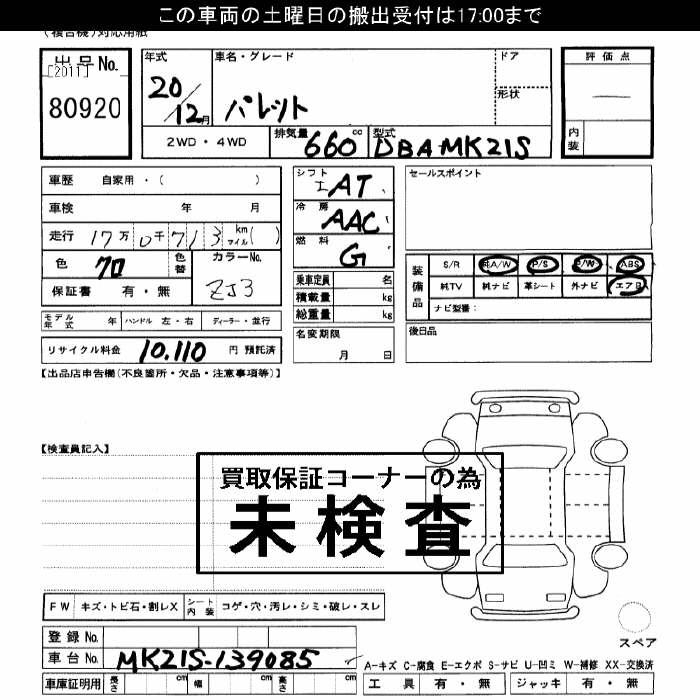 この車両の土曜日の搬出受付は17:00まで
(複合機)対応用紙
出品No.
[2011]
80920
年式
20/12月
車名・グレード
パレット
ドア
形状
評価点
内装
2WD・4WD
排気量 660 cc
型式 DBA-MK21S
車歴 自家用・( )
車検 年 月
走行 17万0千713 km マイル( )
色 クロ
色替
カラーNo. ZJ3
保証書 有・無
シフト IAT
冷房 AAC
燃料 G
乗車定員 名
積載量 kg
総重量 kg
セールスポイント
装備品
S/R 純A/W P/S P/W ABS
純TV 純ナビ 革シート 外ナビ エアB
ナビ型番:
モデル年式 年 ハンドル 左・右 ディーラー・並行
名変期限
月 日
後日品
リサイクル料金 10,110 円 預託済
【出品店申告欄(不良箇所・欠品・注意事項等)】
【検査員記入】
買取保証コーナーの為
未検査
FW キズ・トビ石・割レX シート内装 コゲ・穴・汚レ・シミ・破レ・スレ
登録No.
車台No. MK21S-139085
スペア
A-キズ C-腐食 E-エクボ S-サビ U-凹ミ W-補修 XX-交換済
車庫証明用 長さ cm 幅 cm 高さ cm
工具 有・無 ジャッキ 有・無